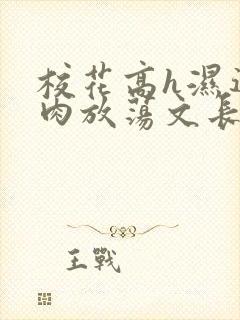 校花高h濕
肉放蕩文長
王戰